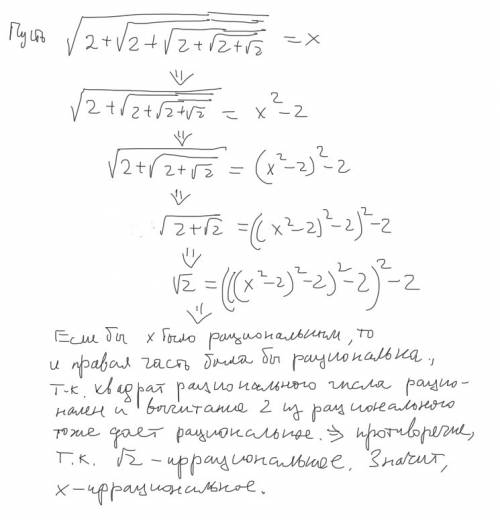 Пусть √(2+√(2+√(2+√(2+√2)))) = x
⇓
√(2+√(2+√(2+√2))) = x²-2
⇓
√(2+√(2+√2)) = (x²-2)²-2
⇓
√(2+√2) = ((x²-2)²-2)²-2
⇓
√2 = (((x²-2)²-2)²-2)²-2
⇓
Если бы x было рациональным, то
и правая часть была бы рациональна.,
т.к. квадрат рационального числа рацио-
нален и вычитание 2 из рационального
тоже дает рациональное. ⇒ противоречие,
т.к. √2 - иррациональное. Значит,
x - иррациональное.